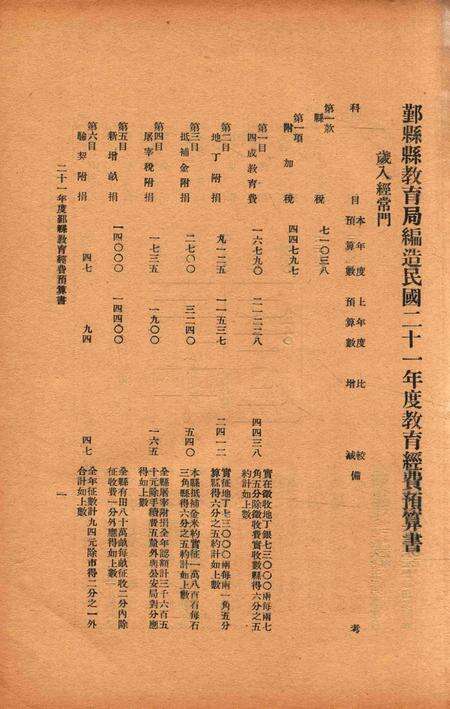 鄞縣縣教育局編造民國二十一年度教育經費預算書
歲入經常門
科 目 本年度預算數 上年度預算數 比較增減 備考
第一款 縣稅 七一〇三八
第一項 附加稅 四四七九七
第一目 四成教育費 一六七九〇 二一二二八 四四三八 實在徵收地丁銀七三〇〇〇兩每兩七
角五分除徵收費實收數縣得六分之五
約計如上數
第二目 地丁附捐 九一二五 一一五三七 二四一二 實征地丁七三〇〇〇兩每兩一角五分
算縣得六分之五約計如上數
第三目 抵補金附捐 二七〇〇 三二四〇 五四〇 本縣抵補金米約實征一萬八百石每石
三角縣得六分之五約計如上數
第四目 屠宰稅附捐 一七三五 一九〇〇 一六五 全縣屠宰附捐全年認額計三千六百五
十元除手續費五釐外與公安局對分應
得如上數
第五目 新增畝捐 一四〇〇〇 一四四〇〇 全縣有田八十萬畝每畝征收二分內除
征收費一分外應得如上數
第六目 驗契附捐 四七 九四 四七 全年征數計九四元除市得二分之一外
合計如上數
二十一年度鄞縣教育經費預算書 一